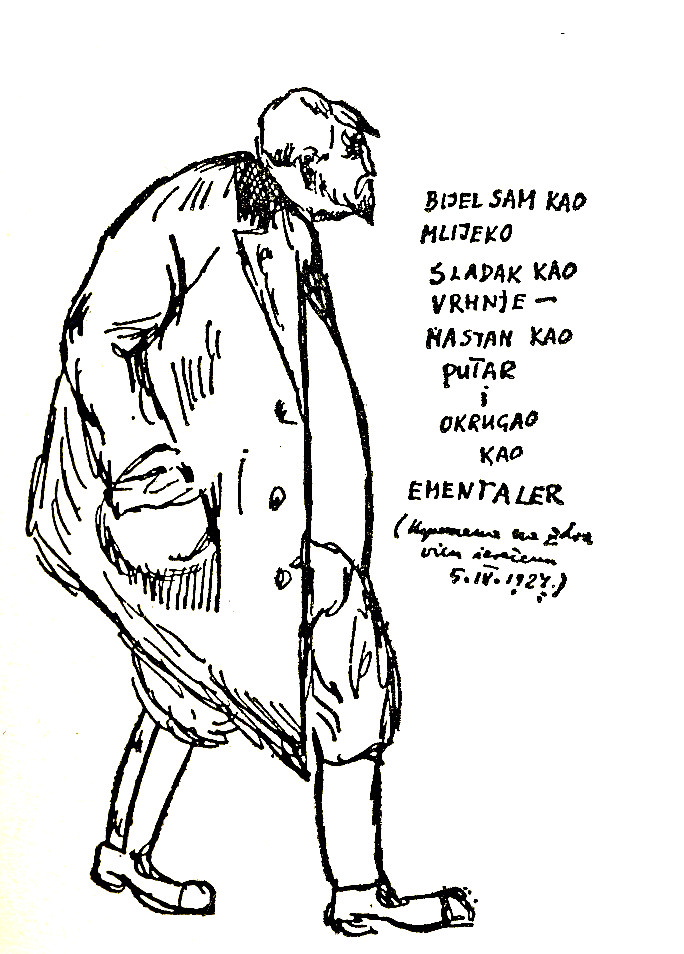 BIJEL SAM KAO
MLIJEKO
SLADAK KAO
VRHNJE —
MASTAN KAO
PUTAR
i
OKRUGAO
KAO
EMENTALER
(Uspomena na
5.IV.1927.)